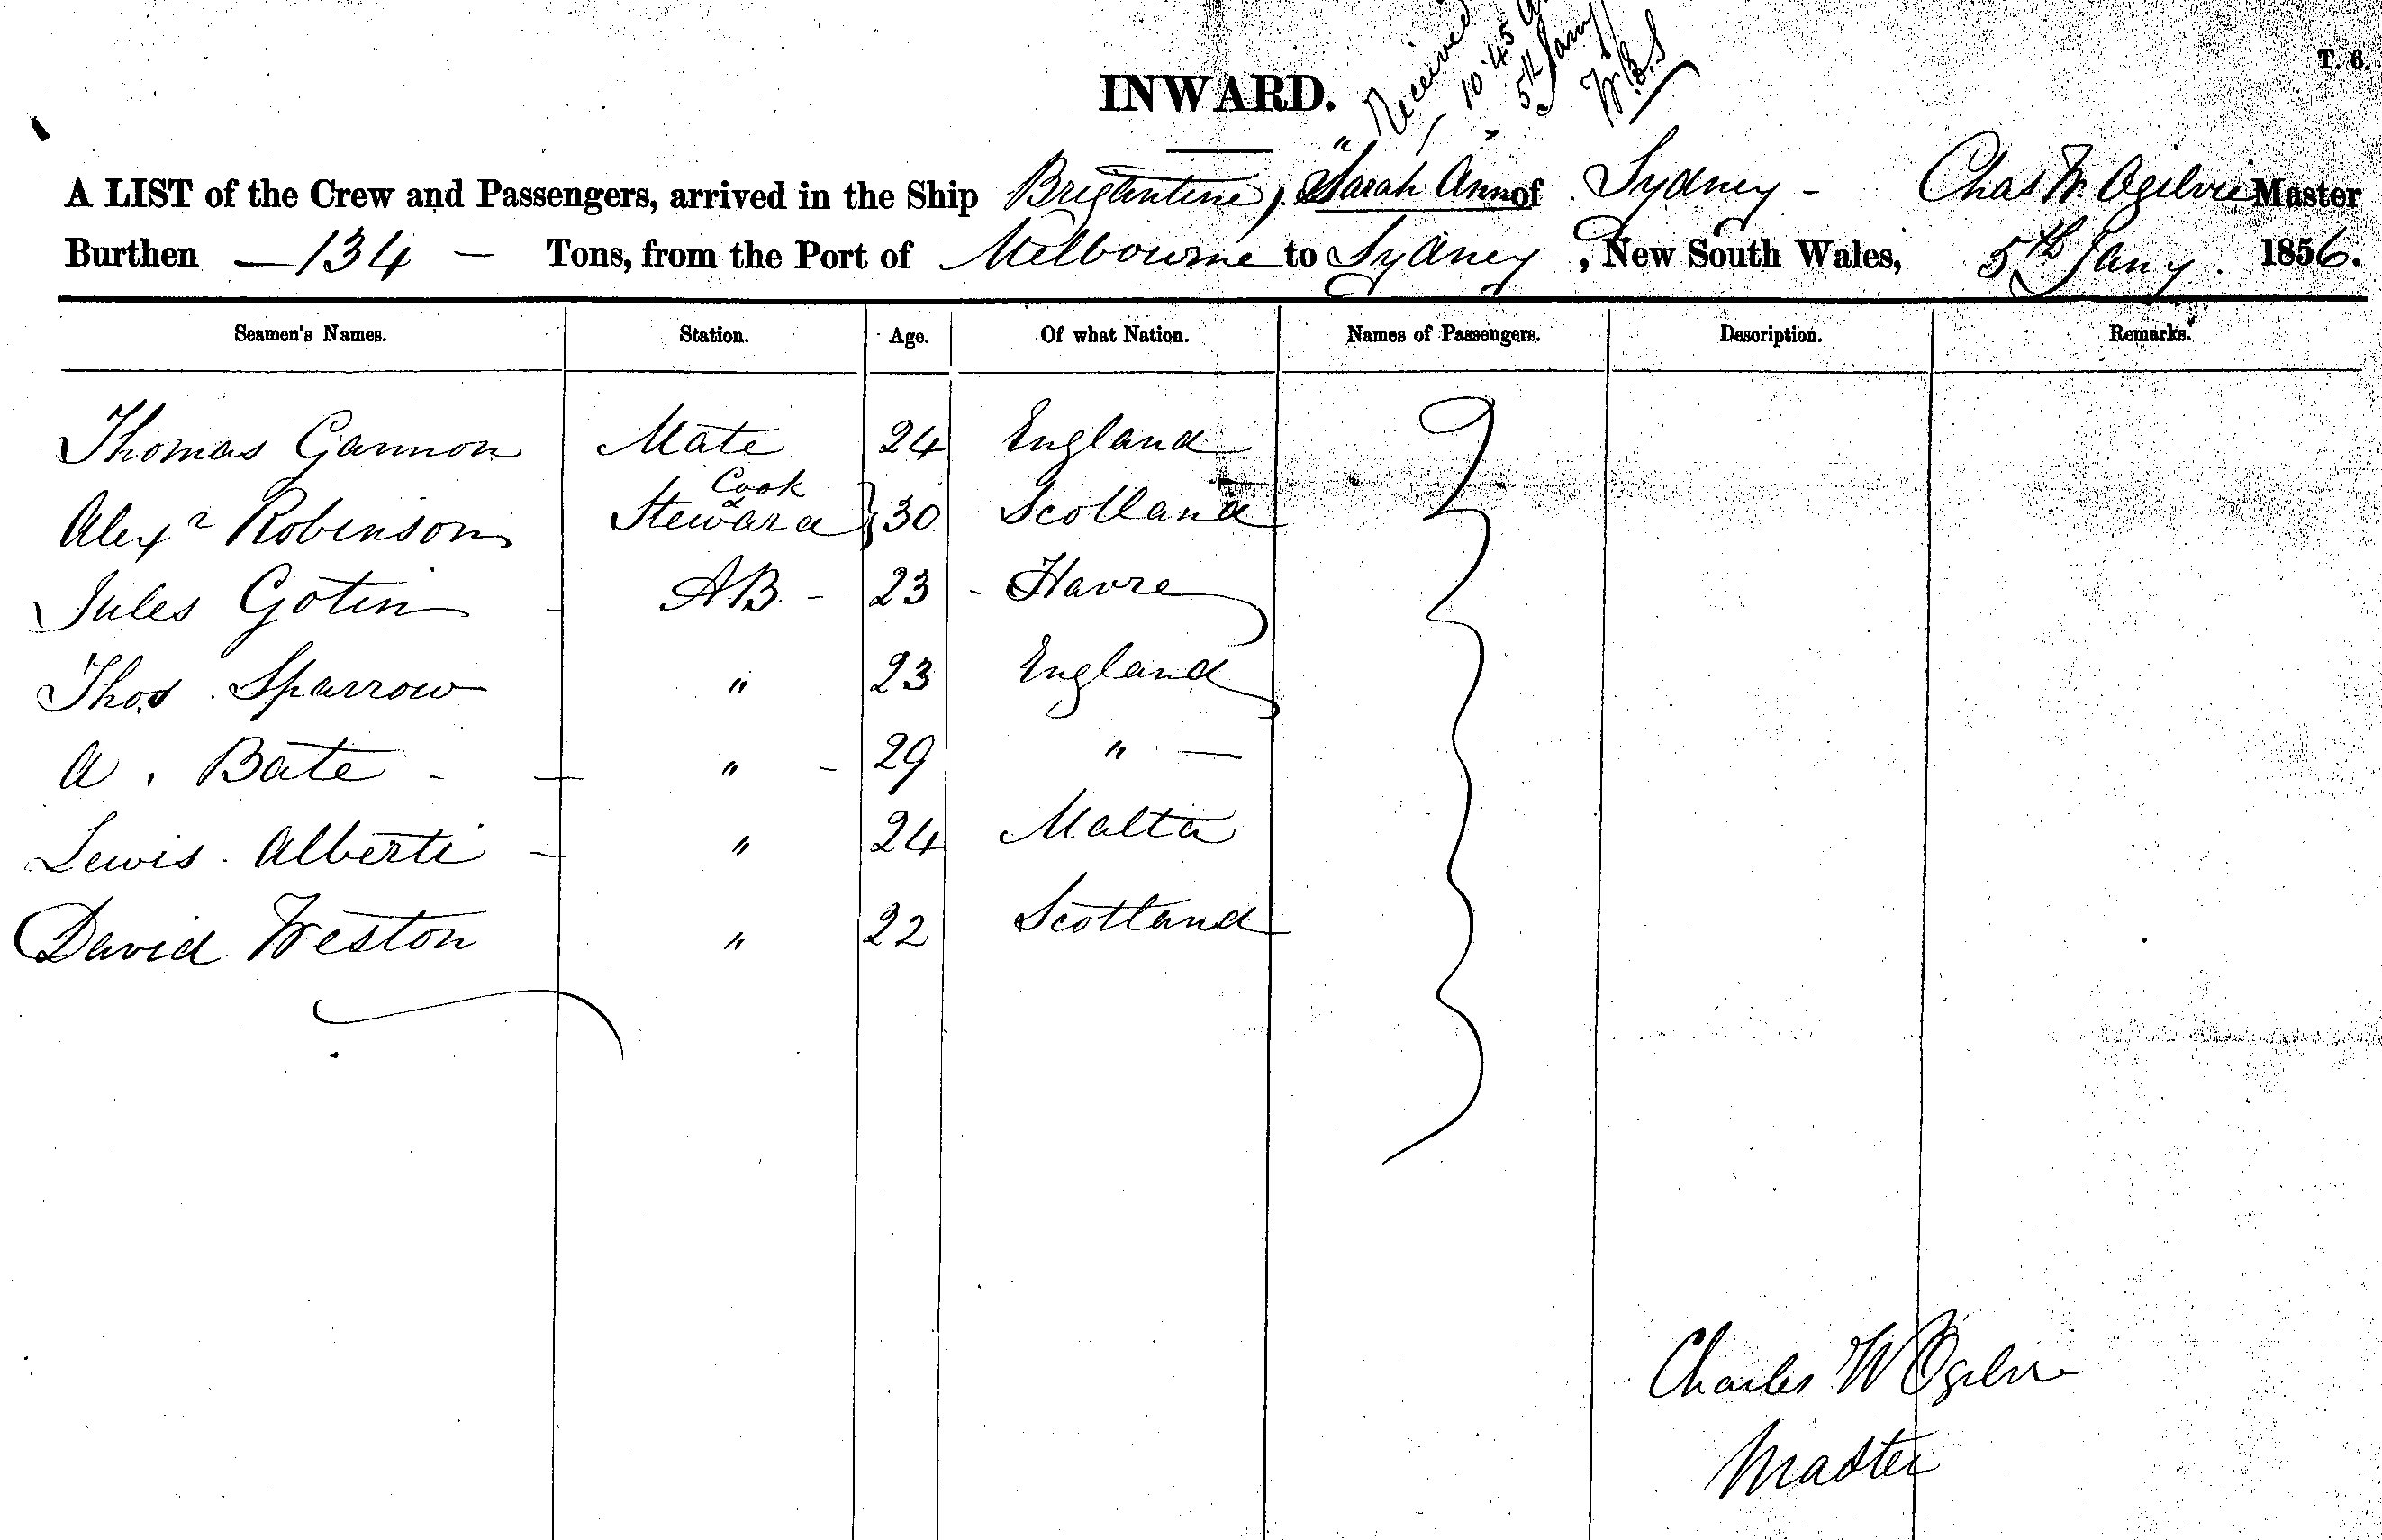 T. 6.
Received
10.45
5th Jany
W.B.S
INWARD.
A LIST of the Crew and Passengers, arrived in the Ship Brigantine, "Sarah Ann" of Sydney - Chas W. Ogilvie Master
Burthen — 134 — Tons, from the Port of Melbourne to Sydney, New South Wales, 5th Jany. 1856.
Seamen's Names. Station. Age. Of what Nation. Names of Passengers. Description. Remarks.
Thomas Gannon Mate 24 England
Alexr Robinson Cook & Steward } 30 Scotland
Jules Gotin - AB. - 23 - Havre
Thos. Sparrow " 23 England
A. Bate - — " - 29 " —
Lewis Alberti — " 24 Malta
David Weston " 22 Scotland
Charles W Ogilvie
Master